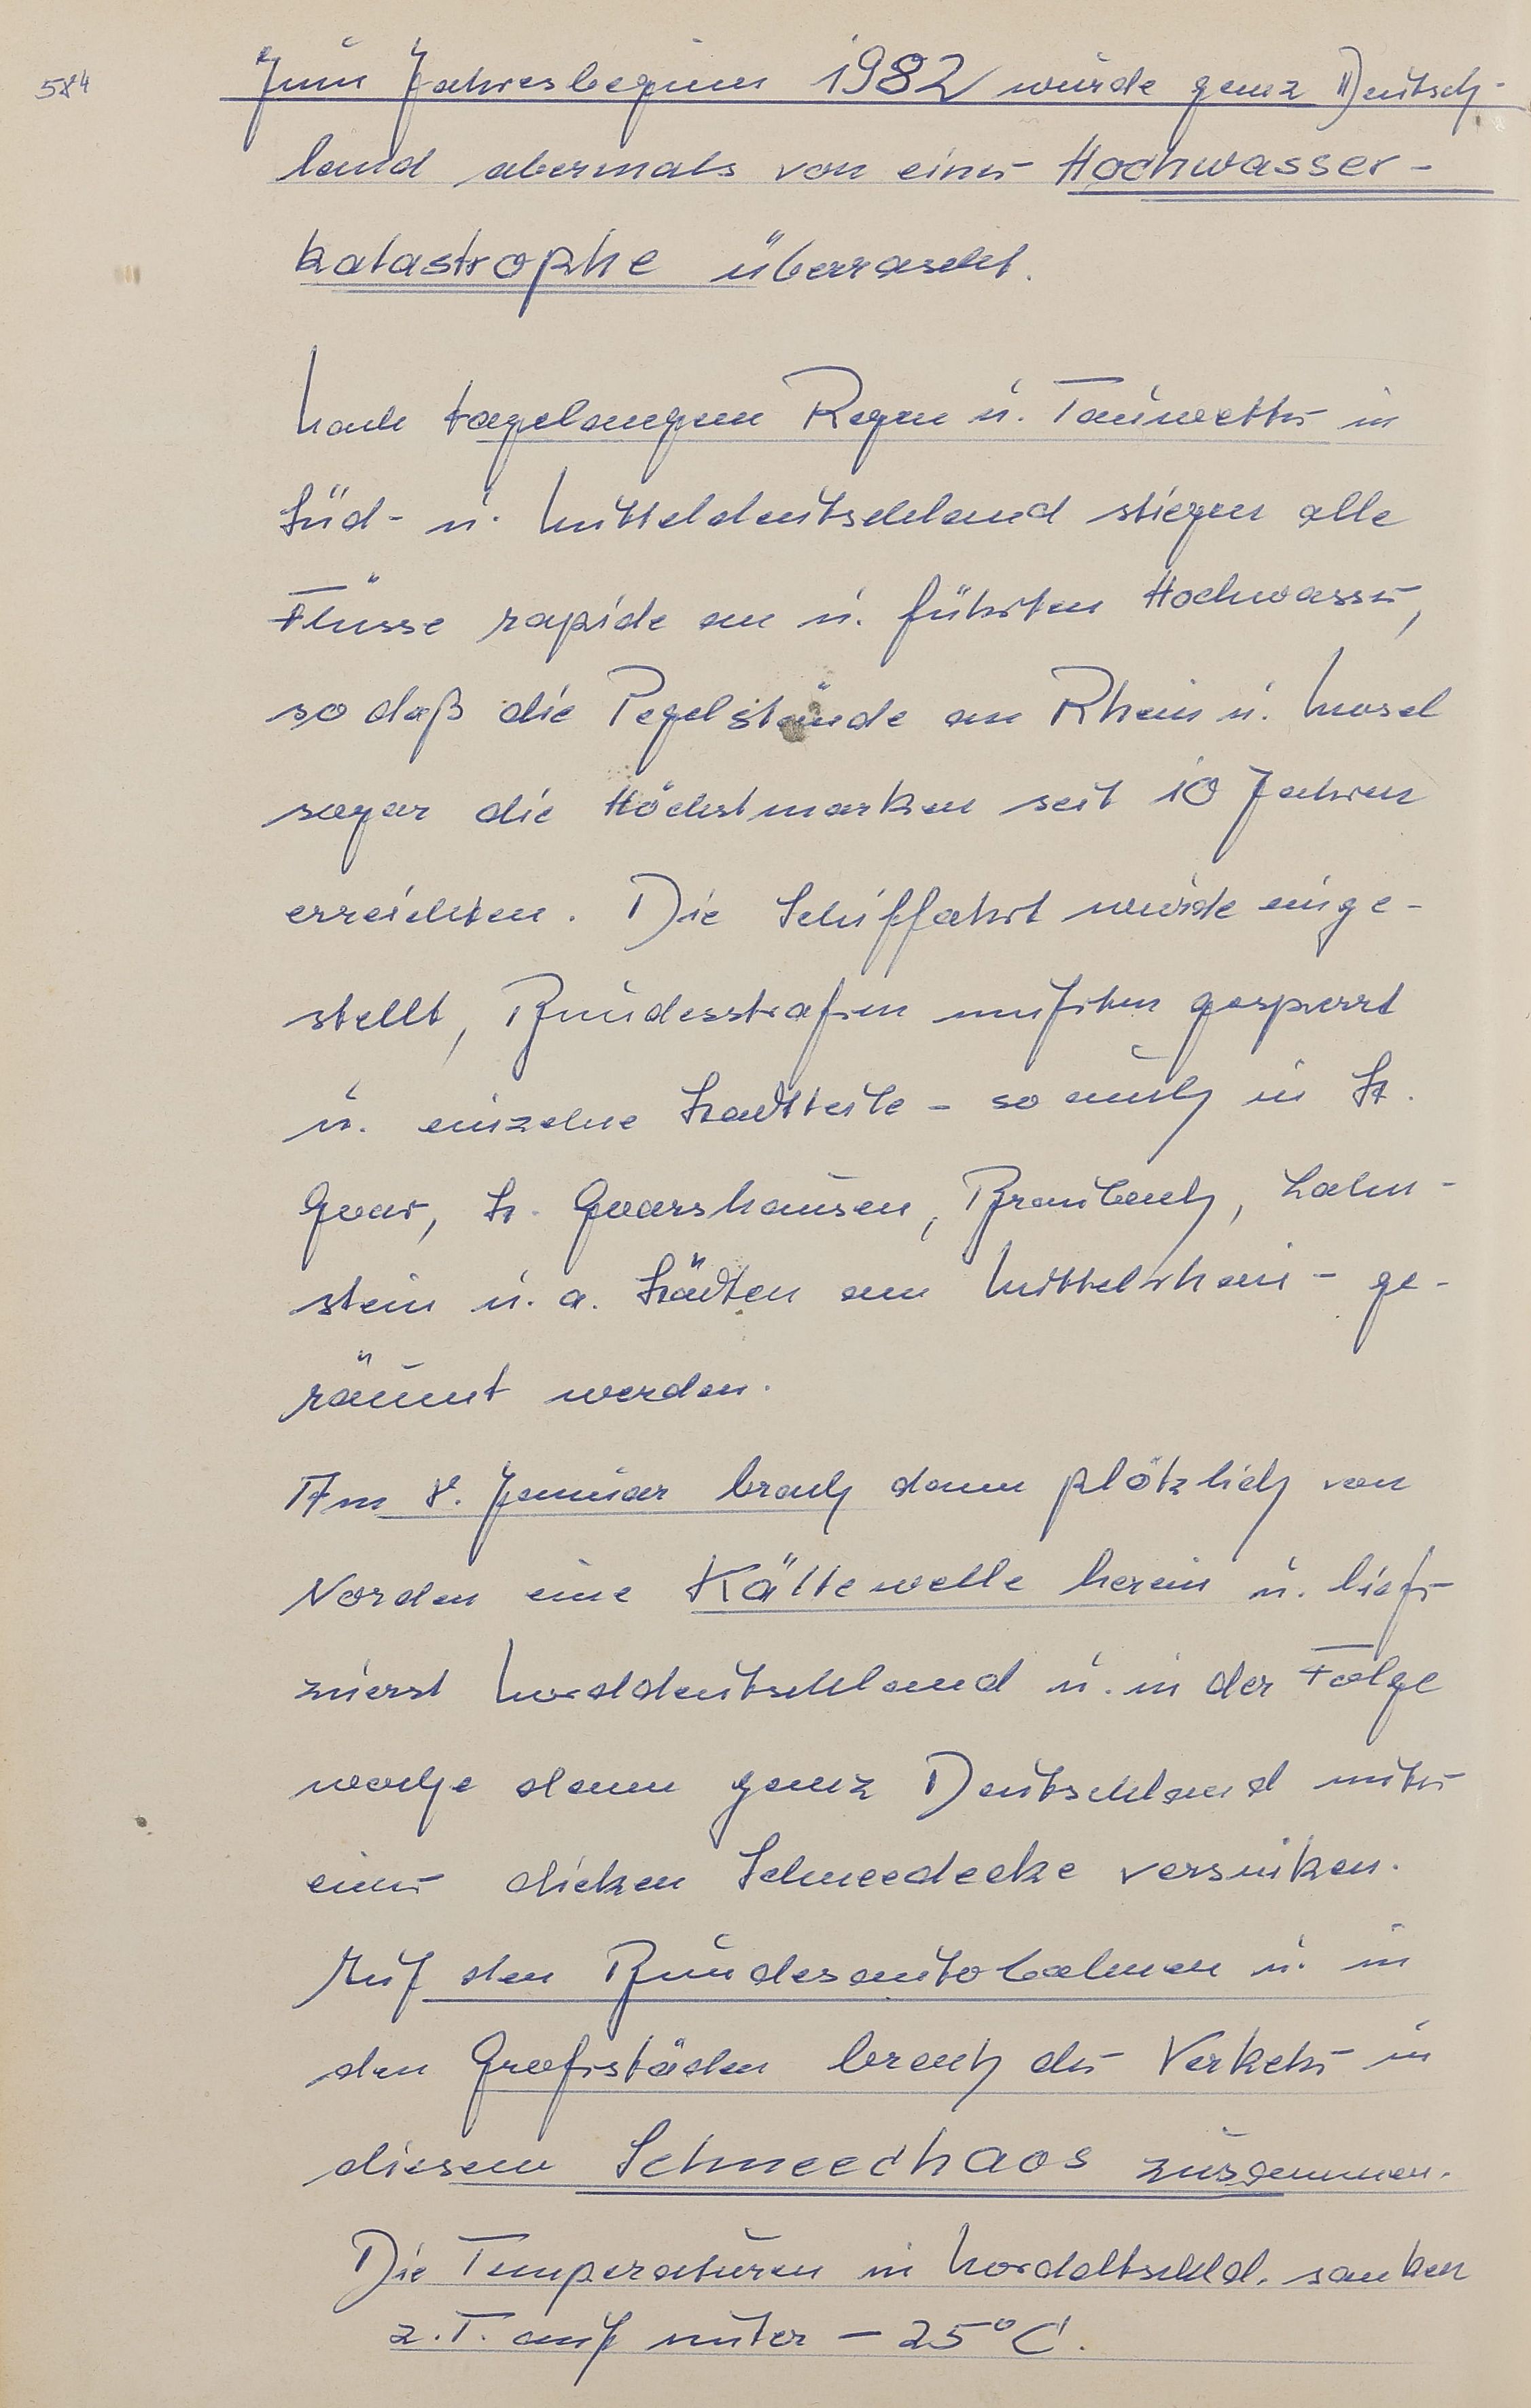 584
Zum Jahresbeginn 1982 wurde ganz Deutsch-
land abermals von einer Hochwasser-
katastrophe überrascht.
Nach tagelangem Regen u. Tauwetter in
Süd- u. Mitteldeutschland stiegen alle
Flüsse rapide an u. führten Hochwasser,
so daß die Pegelstände an Rhein u. Mosel
sogar die Höchstmarken seit 10 Jahren
erreichten. Die Schiffahrt wurde einge-
stellt, Bundesstraßen mußten gesperrt
u. einzelne Stadtteile - so auch in St.
Goar, St. Goarshausen, Braubach, Lahn-
stein u. a. Städten am Mittelrhein - ge-
räumt werden.
Am 8. Januar brach dann plötzlich von
Norden eine Kältewelle herein u. ließ
zuerst Norddeutschland u. in der Folge
woche dann ganz Deutschland unter
einer dicken Schneedecke versinken.
Auf den Bundesautobahnen u. in
den Großstäden brach der Verkehr in
diesem Schneechaos zusammen.
Die Temperaturen in Norddtschld. sanken
z.T. auf unter - 25°C.